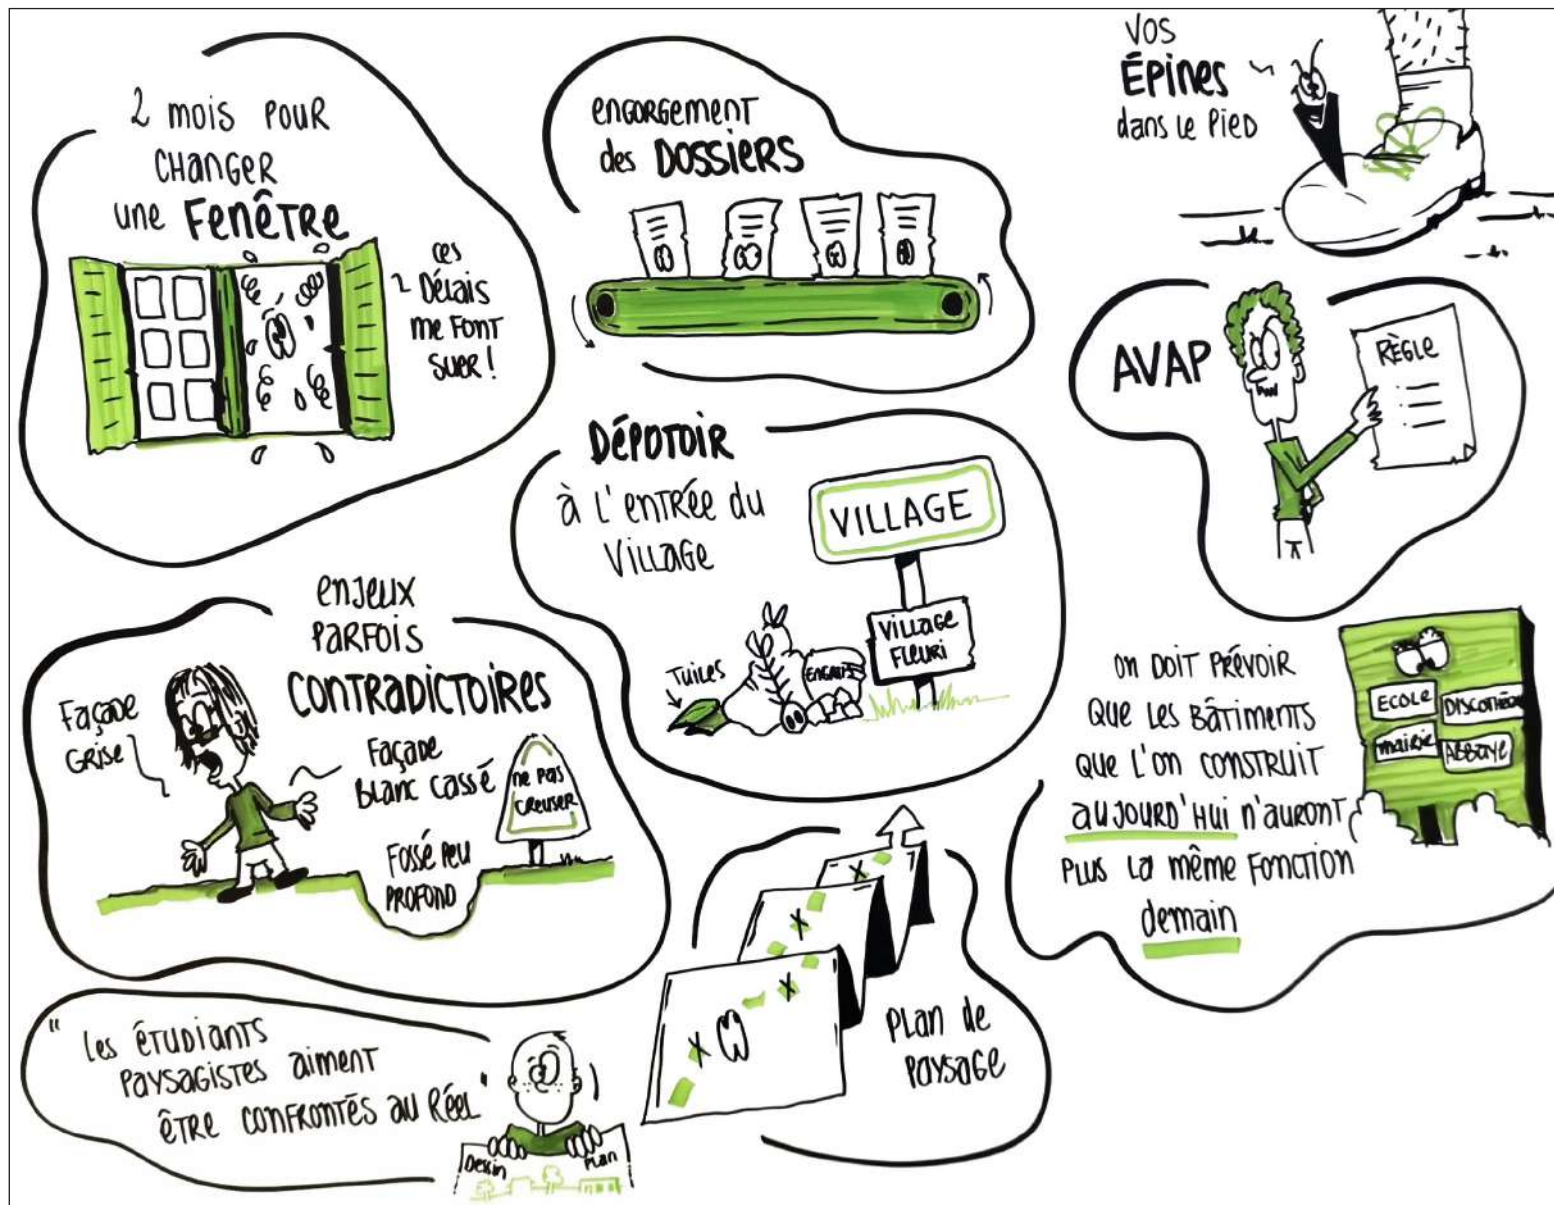 2 mois pour
changer
une Fenêtre
ces
Délais
me font
suer !
engorgement
des Dossiers
Vos
Épines
dans le pied
AVAP
Règle
Dépotoir
à l'entrée du
Village
VILLAGE
Village
Fleuri
Tuiles
Engrais
enjeux
parfois
contradictoires
Façade
Grise
Façade
Blanc cassé
ne pas
creuser
Fossé peu
profond
on doit prévoir
que les bâtiments
que l'on construit
aujourd'hui n'auront
plus la même fonction
demain
Ecole
Discothèque
mairie
Abbaye
Plan de
paysage
"Les étudiants
paysagistes aiment
être confrontés au réel"
Dessin
Plan